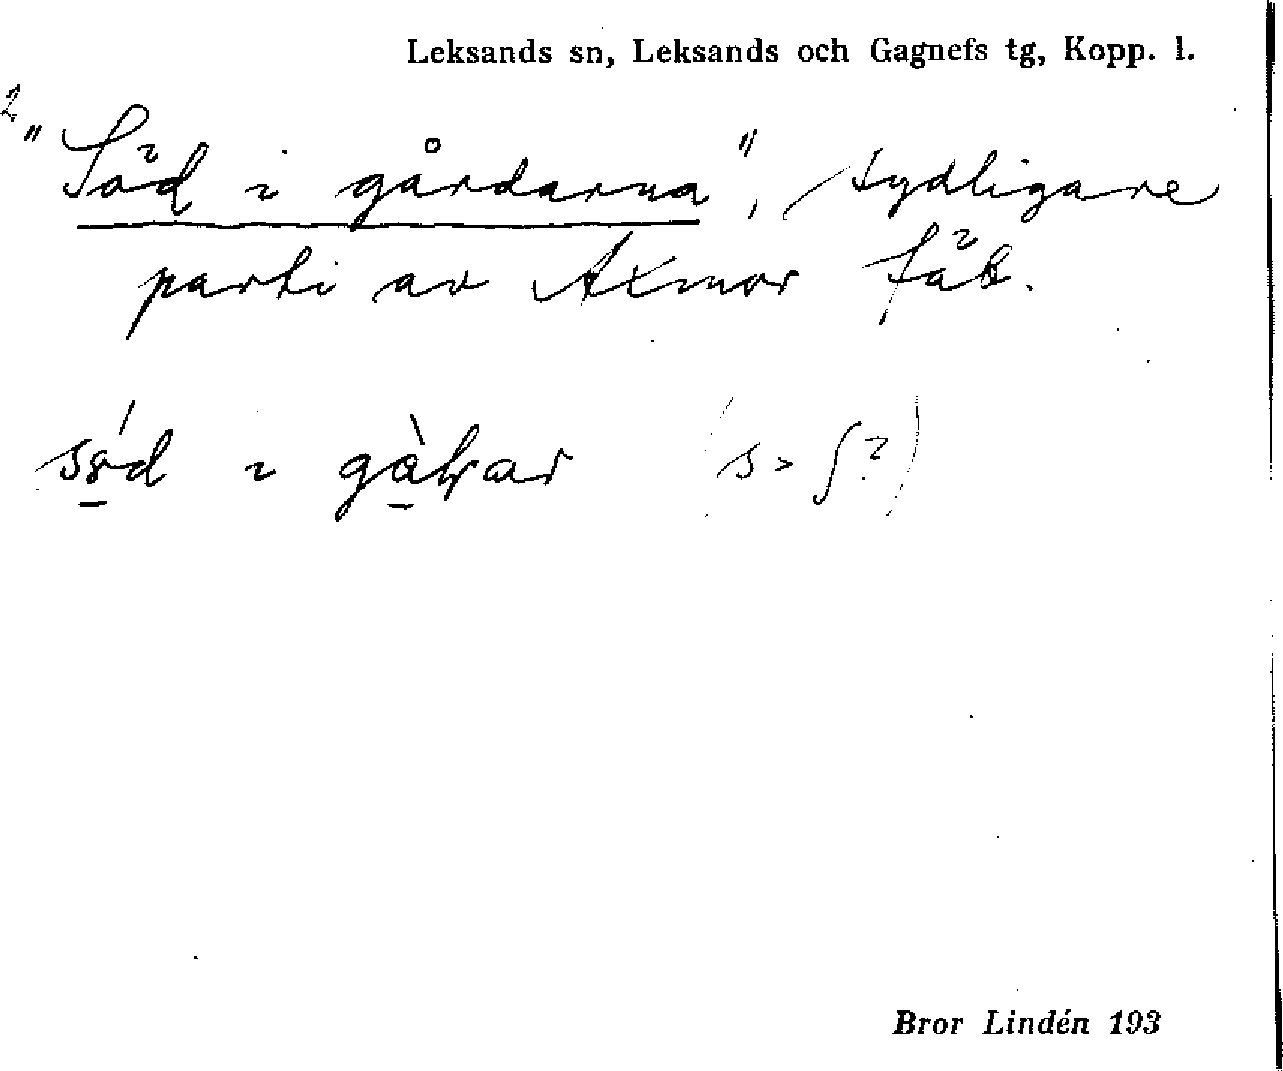 Leksands sn, Leksands och Gagnefs tg, Kopp. l.
2
"Söd i gårdarna", sydligare
parti av Axmor fäb.
i (s > ʃ?)
Bror Lindén 193